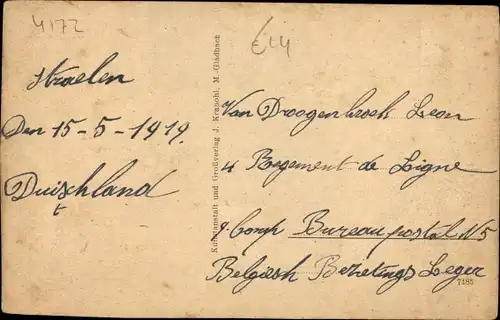 4172
Straelen
Den 15-5-1919.
Duischland
t
Kunstanstalt und Großverlag J. Krapohl, M.-Gladbach
Van Droogenbroek Leon
4 Regement de Ligne
9 Comp Bureau postal N 5
Belgiesh Bezetings Leger
7485